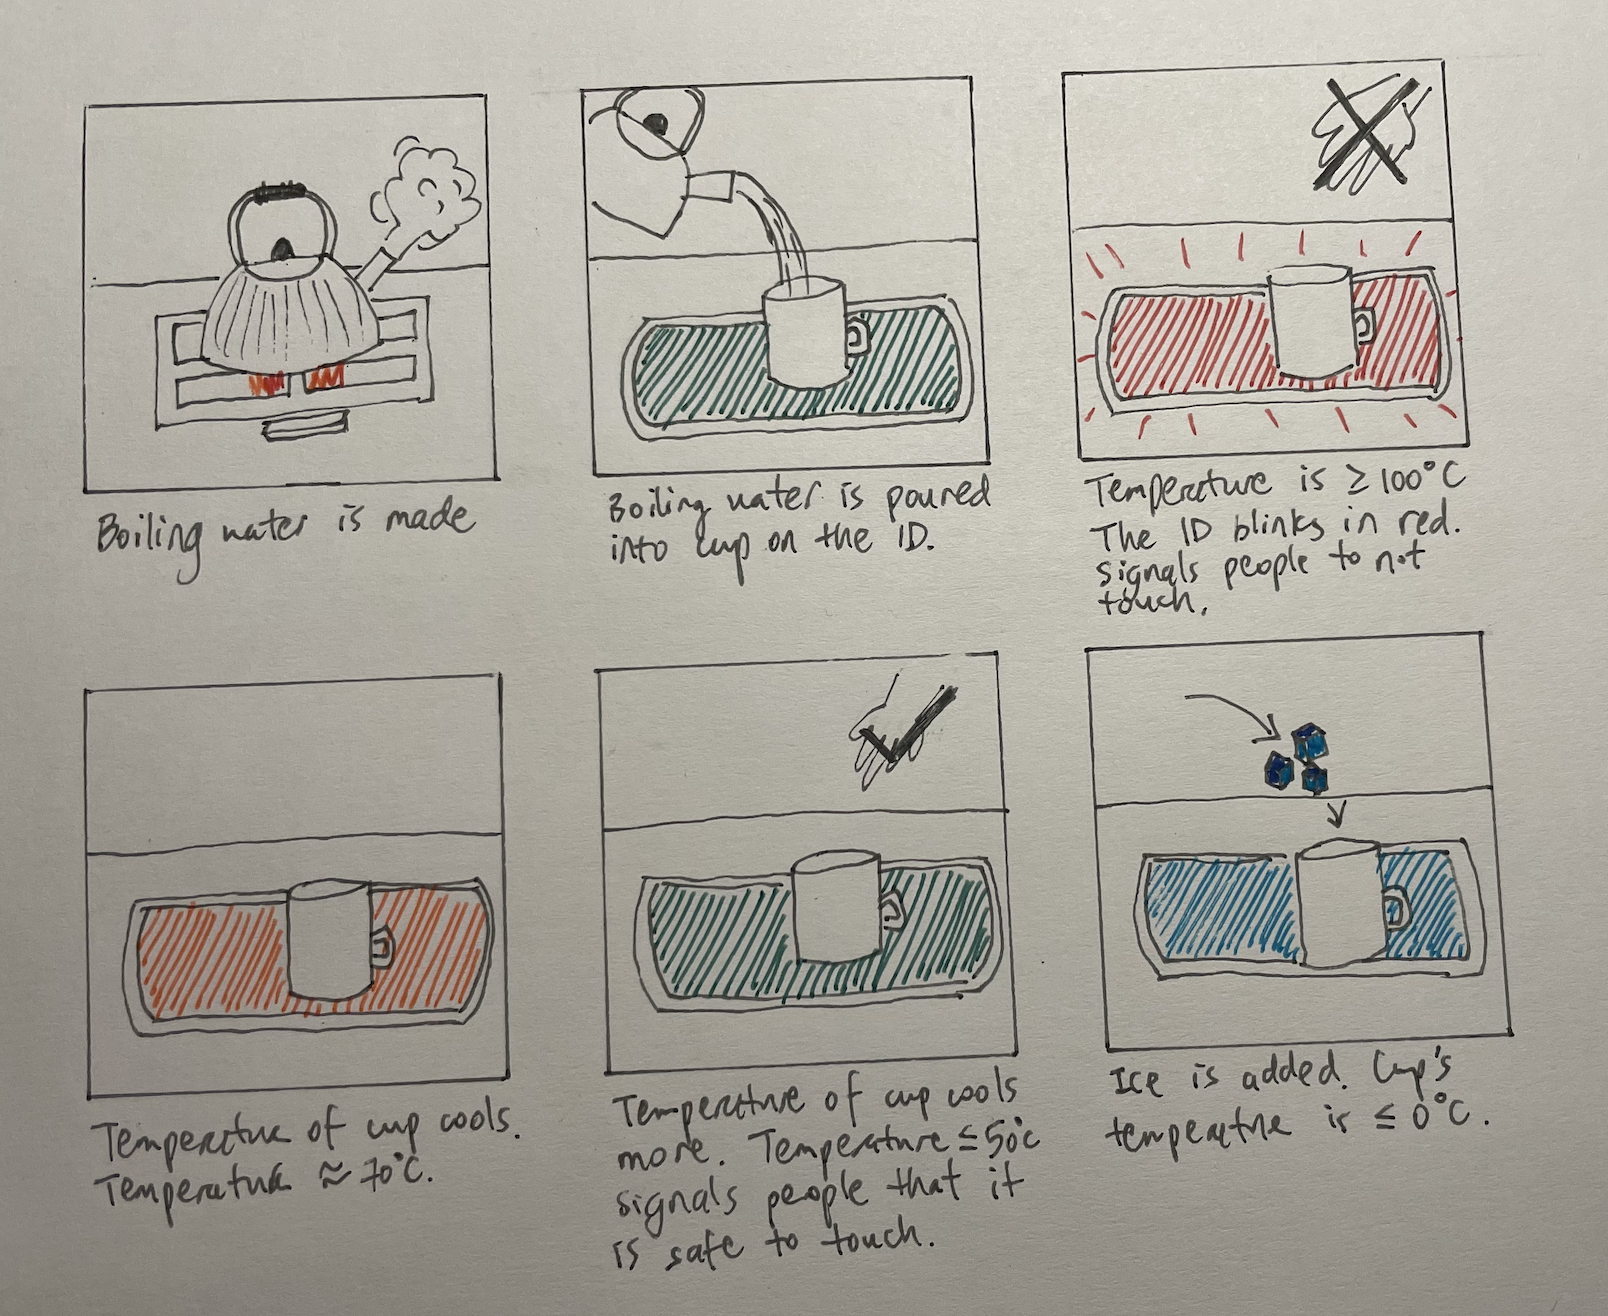 Boiling water is made
Boiling water is poured
into cup on the ID.
Temperature is ≥ 100°C
The ID blinks in red.
signals people to not
touch.
Temperature of cup cools.
Temperature ≈ 70°C.
Temperature of cup cools
more. Temperature ≤ 50°C
signals people that it
is safe to touch.
Ice is added. Cup's
temperature is ≤ 0°C.